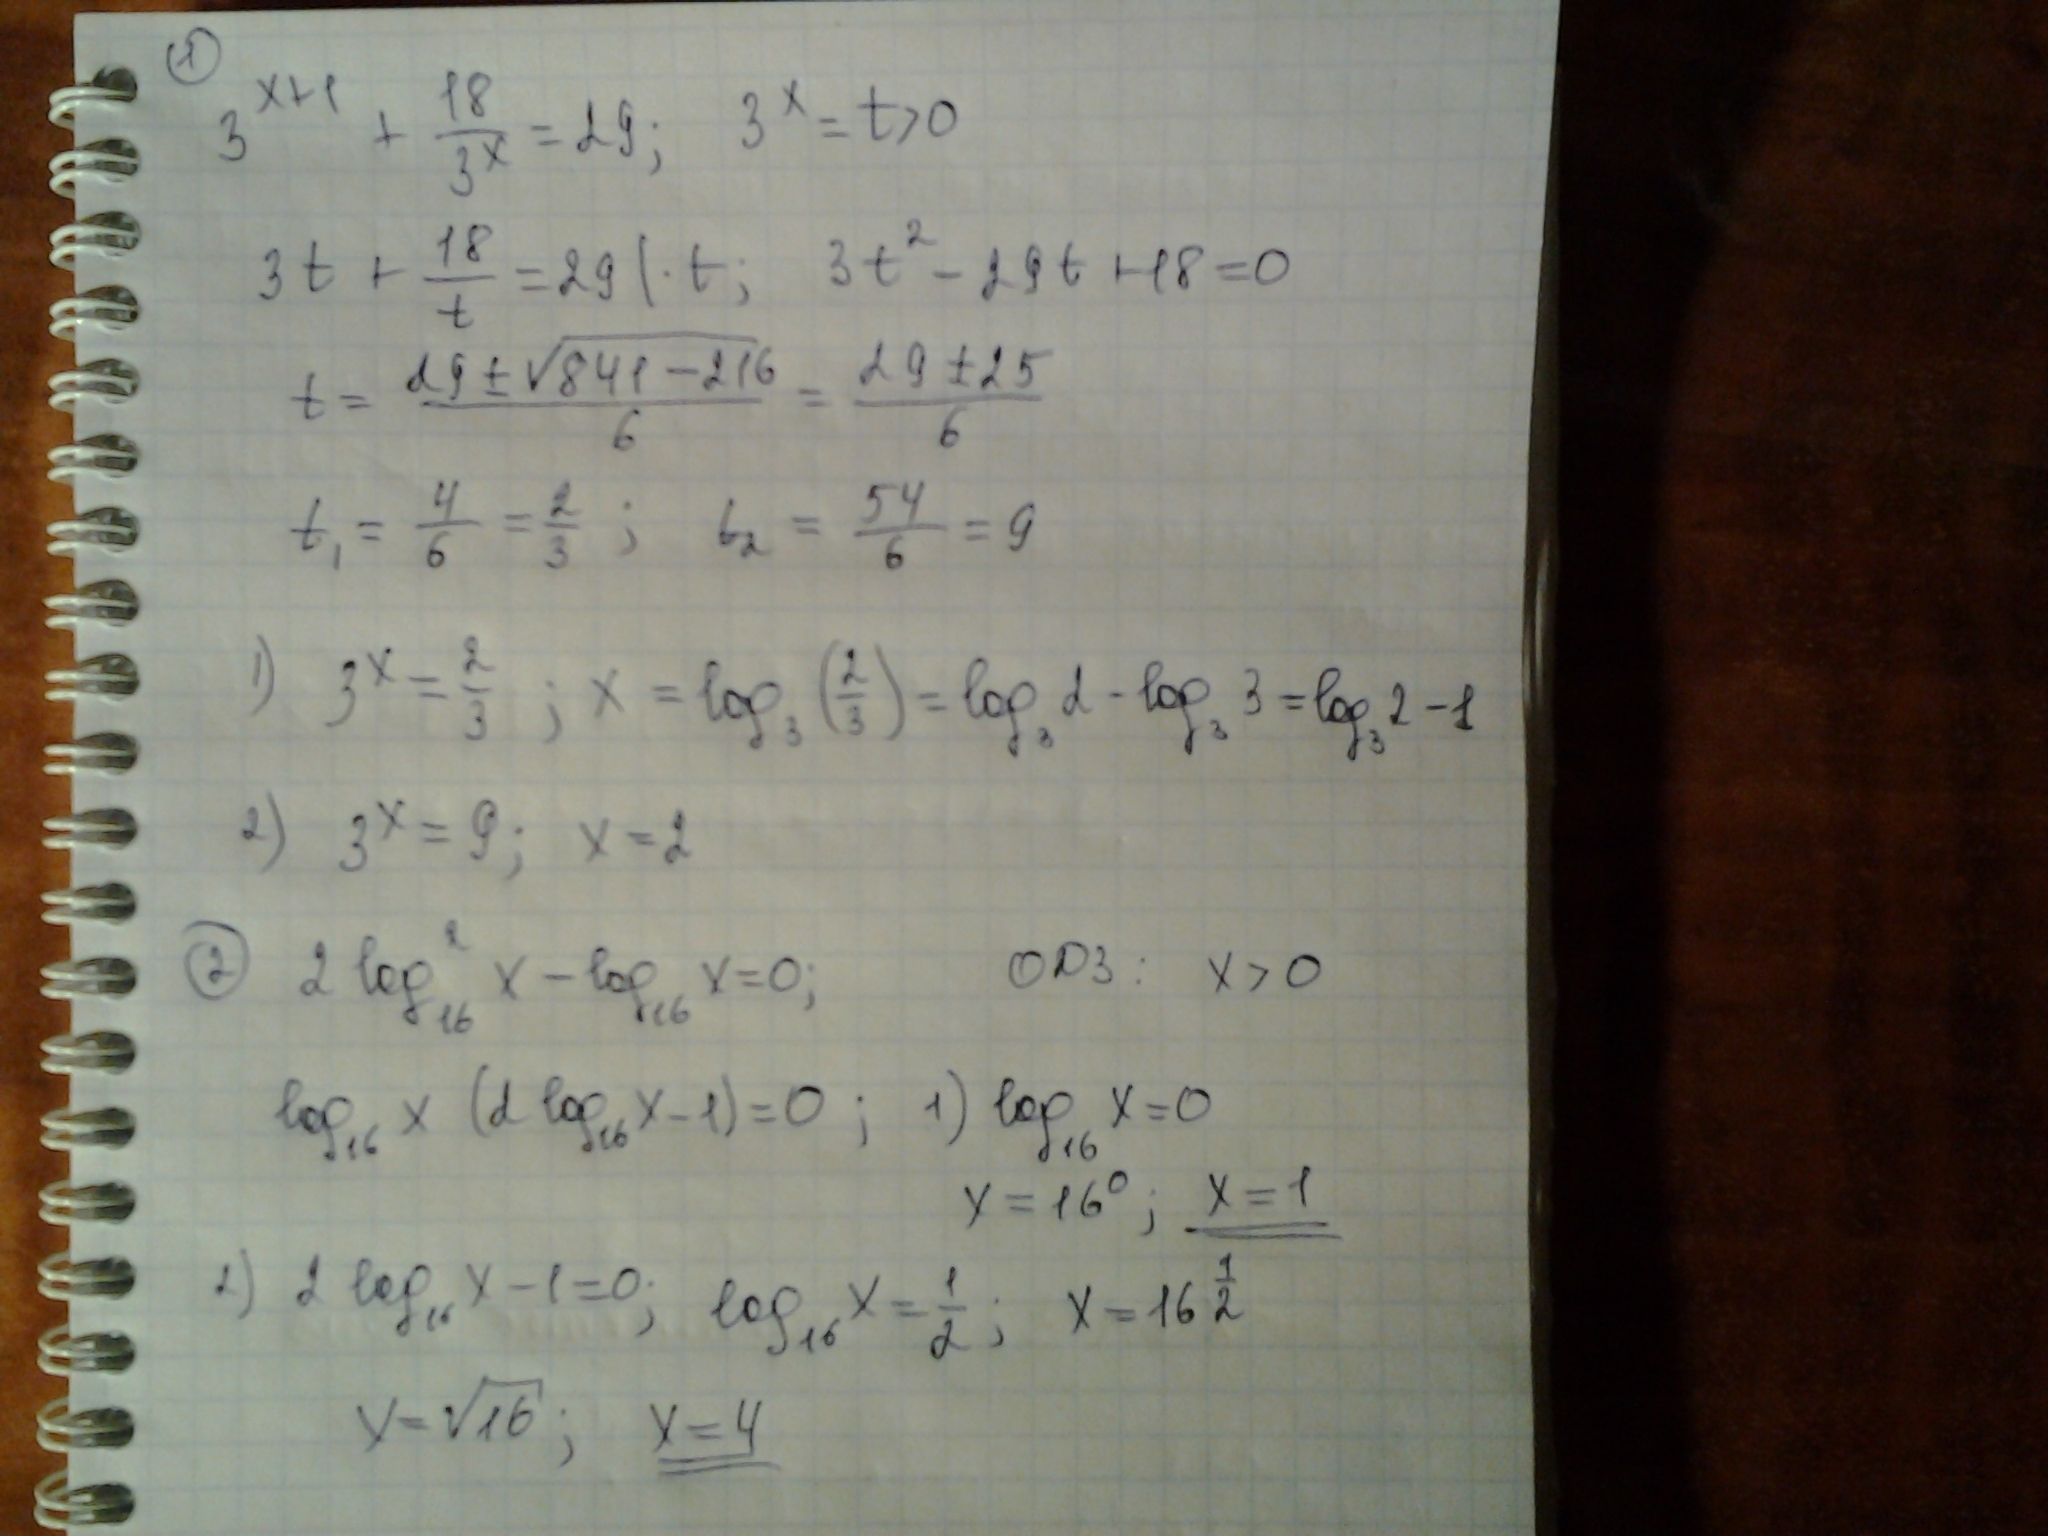 ①
3^(x+1) + 18/3^x = 29; 3^x = t > 0
3t + 18/t = 29 | · t; 3t² - 29t + 18 = 0
t = (29 ± √(841 - 216))/6 = (29 ± 25)/6
t₁ = 4/6 = 2/3; t₂ = 54/6 = 9
1) 3^x = 2/3; x = log₃(2/3) = log₃ 2 - log₃ 3 = log₃ 2 - 1
2) 3^x = 9; x = 2
② 2 log²₁₆ x - log₁₆ x = 0; ОДЗ: x > 0
log₁₆ x (2 log₁₆ x - 1) = 0; 1) log₁₆ x = 0
x = 16⁰; x = 1
2) 2 log₁₆ x - 1 = 0; log₁₆ x = 1/2; x = 16^(1/2)
x = √16; x = 4